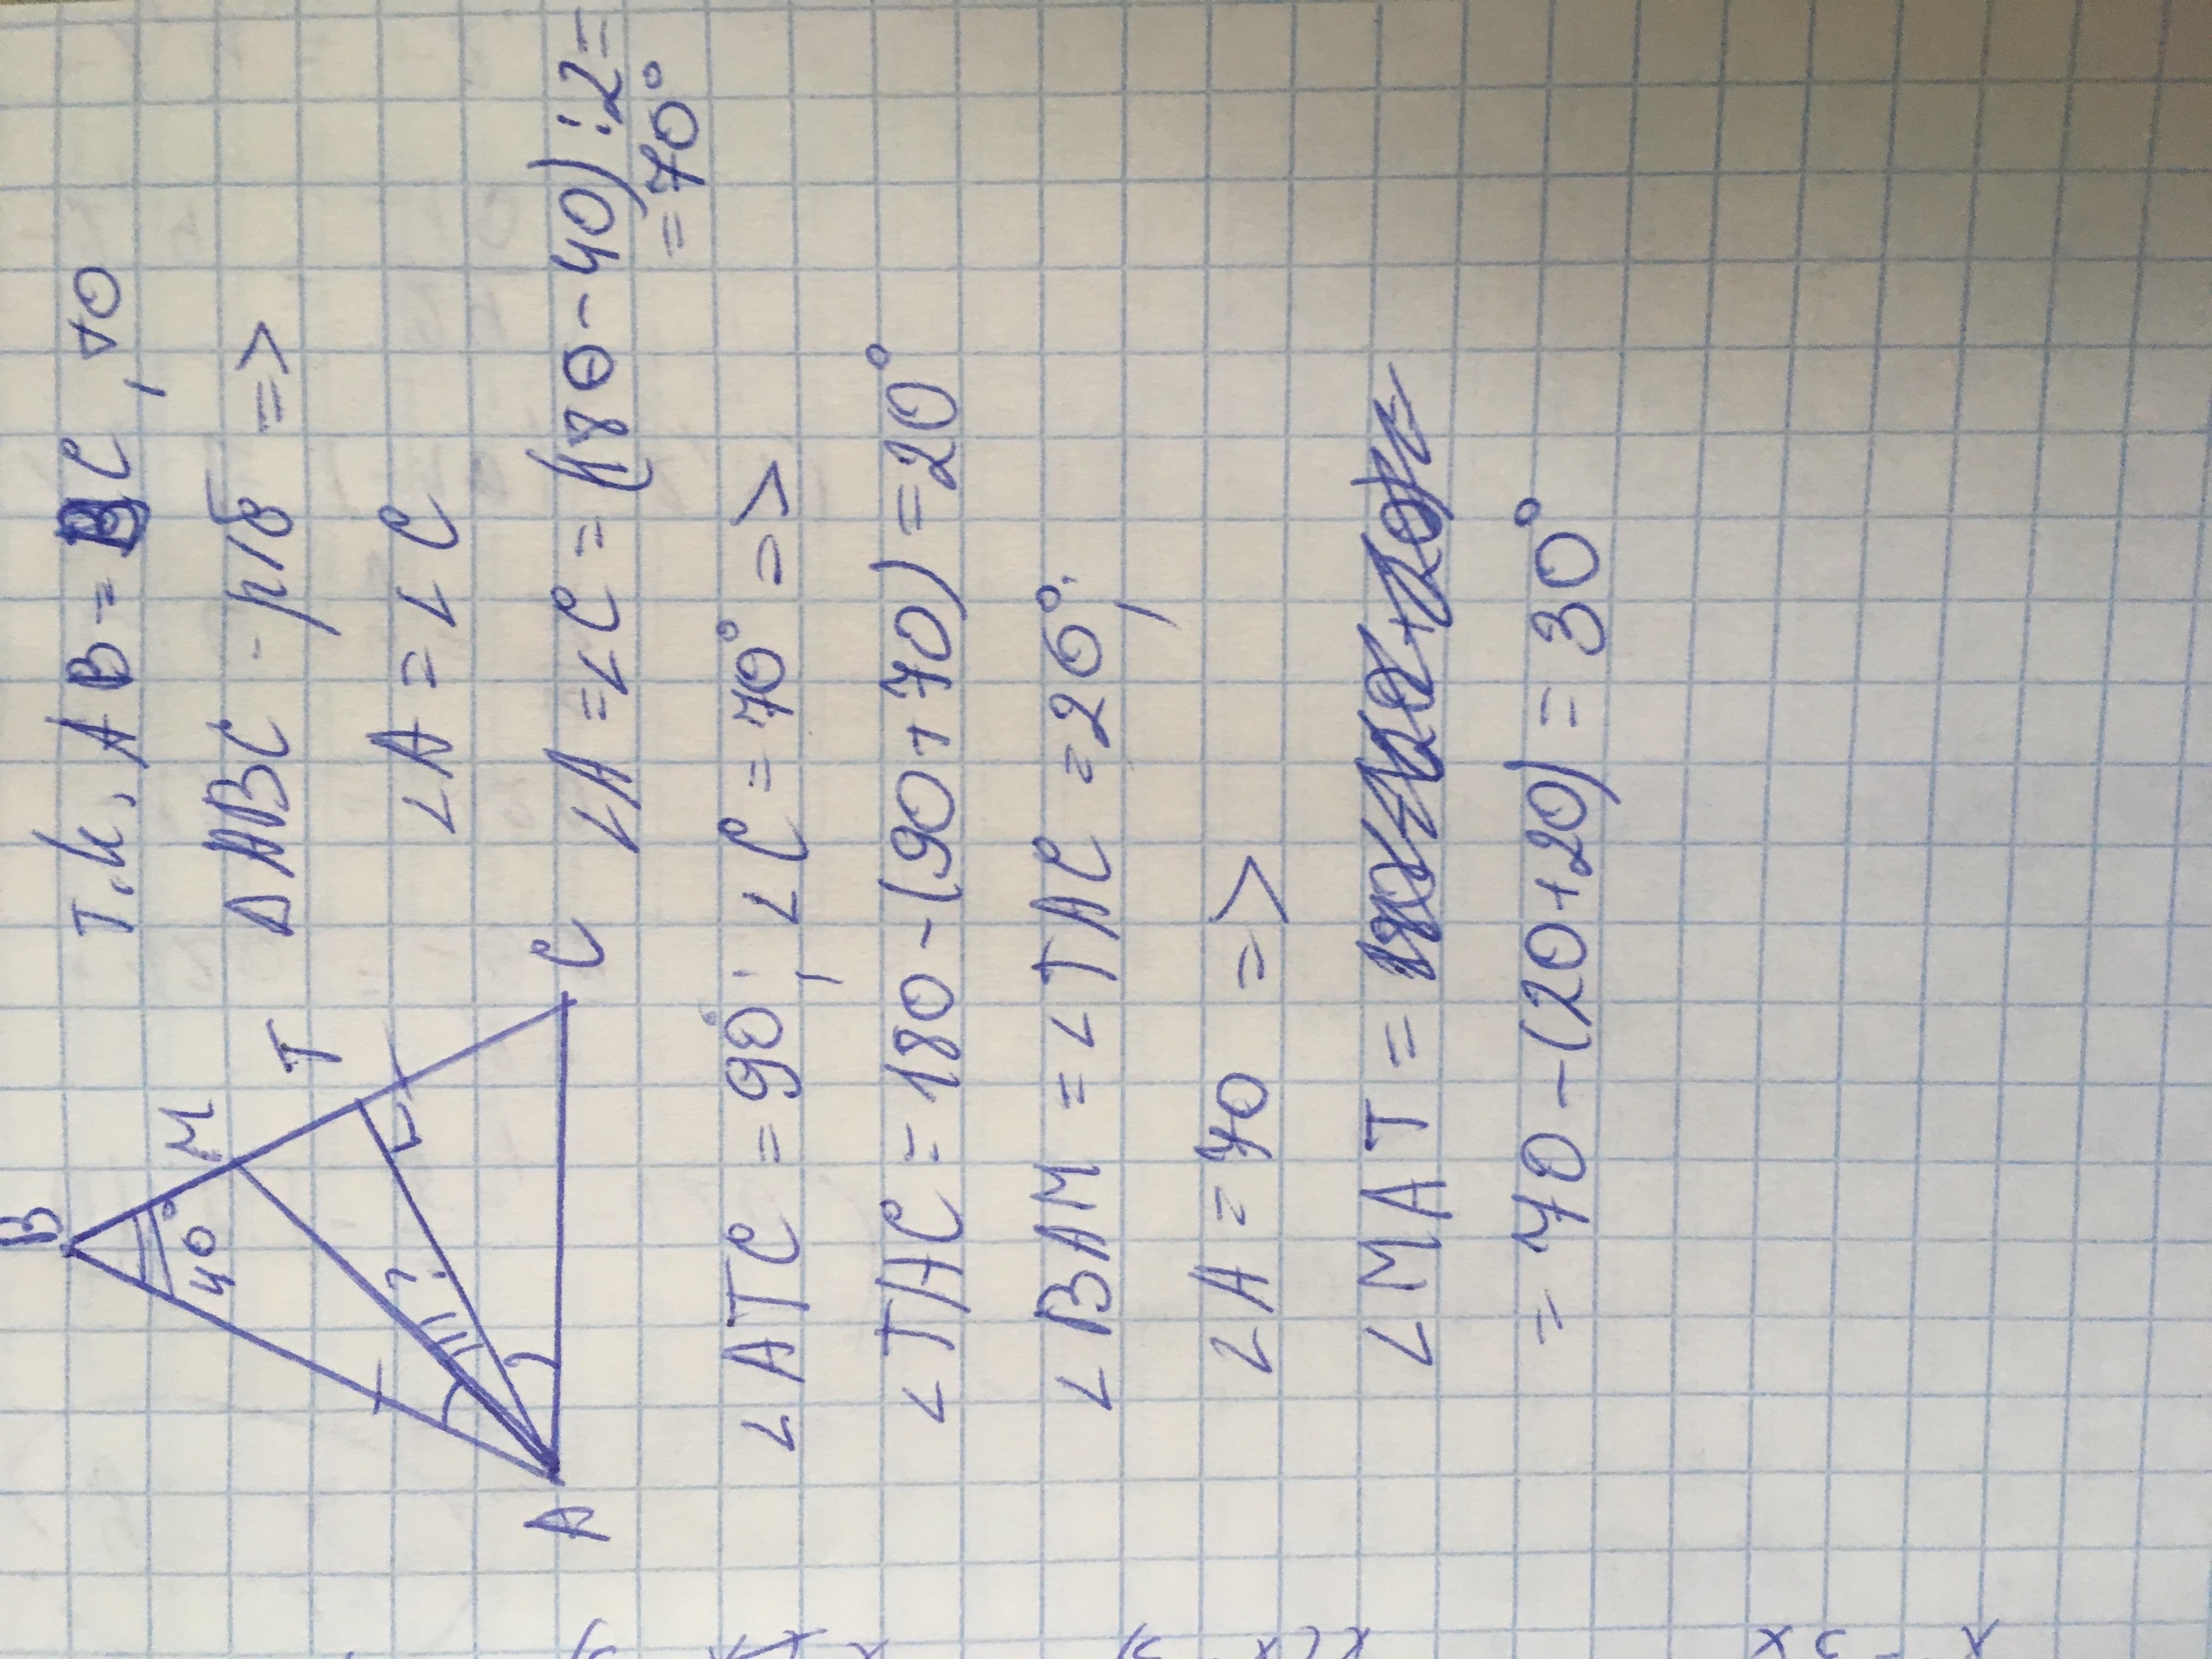 B
M
T
40°
?
A
C
Т.к. AB=BC, то
Δ ABC - р/б =>
∠A = ∠C
∠A =∠C = (180-40):2=
=70°
∠ATC = 90°; ∠C = 70° =>
∠TAC = 180-(90+70)=20°
∠BAM = ∠TAC = 20°;
∠A = 70 =>
∠MAT =
= 70-(20+20) = 30°